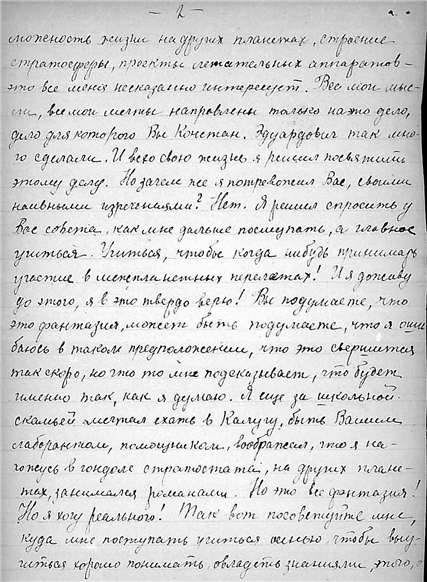 — 2 —
можность жизни на других планетах, строение
стратосферы, проекты летательных аппаратов –
это все меня несказанно интересует. Все мои мыс-
ли, все мои мечты направлены только на это дело,
дело для которого Вы Констан. Эдуардович так мно-
го сделали. И всю свою жизнь я решил посвятить
этому делу. Но зачем же я потревожил Вас, своими
наивными изречениями? Нет. Я решил спросить у
Вас совета как мне дальше поступать, а главное
учиться. Учиться, чтобы когда нибудь принимать
участие в межпланетных перелетах! И я доживу
до этого, я в это твердо верю! Вы подумаете, что
это фантазия, может быть подумаете, что я оши
баюсь в таком предположении, что это свершится
так скоро, но что то мне подсказывает, что будет
именно так, как я думаю. Я еще за школьной
скамьей мечтал ехать в Калугу, быть Вашим
лаборантом, помощником, воображал, что я на-
хожусь в гондоле стратостата, на других плане-
тах, занимался романами. Но это все фантазия!
Но я хочу реального! Так вот посоветуйте мне,
куда мне поступать учиться осенью, чтобы выу-
читься хорошо понимать, овладеть знаниями этого,